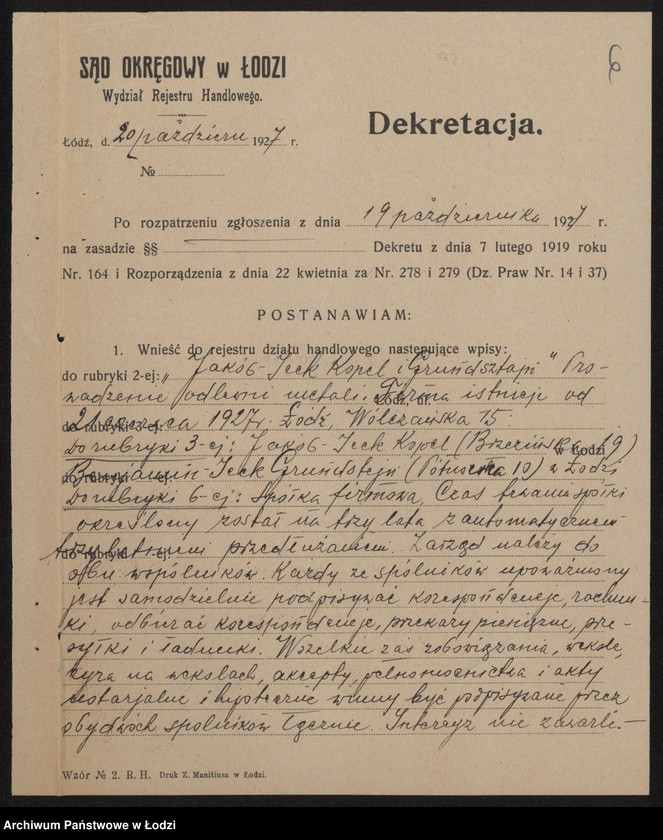 6
SĄD OKRĘGOWY w ŁODZI
Wydział Rejestru Handlowego.
Dekretacja.
Łódź, d. 20 październ 1927 r.
№
Po rozpatrzeniu zgłoszenia z dnia 19 października 1927 r.
na zasadzie §§ Dekretu z dnia 7 lutego 1919 roku
Nr. 164 i Rozporządzenia z dnia 22 kwietnia za Nr. 278 i 279 (Dz. Praw Nr. 14 i 37)
POSTANAWIAM:
1. Wnieść do rejestru działu handlowego następujące wpisy:
do rubryki 2-ej: „Jakób-Icek Kopel i Grundsztajn" Pro-
wadzenie odlewni metali. Firma istnieje od
21 czerwca 1927 r. Łódź, Wólczańska 15.
Do rubryki 3-ej: Jakób-Icek Kopel (Brzezińska 69)
Benjamin-Icek Grundsztejn (Północna 10) w Łodzi
Do rubryki 6-ej: Spółka firmowa, Czas trwania spółki
określony został na trzy lata z automatycznem
trzyletniemi przedłużaniem. Zarząd należy do
obu wspólników. Każdy ze spólników upoważniony
jest samodzielnie podpisywać korespondencję, rachun-
ki, odbierać korespondencję, przekazy pieniężne, prze-
syłki i ładunki. Wszelkie zaś zobowiązania, weksle,
żyra na wekslach, akcepty, pełnomocnictwa i akty
notarjalne i hipoteczne winny być podpisywane przez
obydwóch spólników łącznie. Intercyz nie zawarli.—
Wzór № 2. R. H. Druk Z. Manitiusa w Łodzi.
Archiwum Państwowe w Łodzi